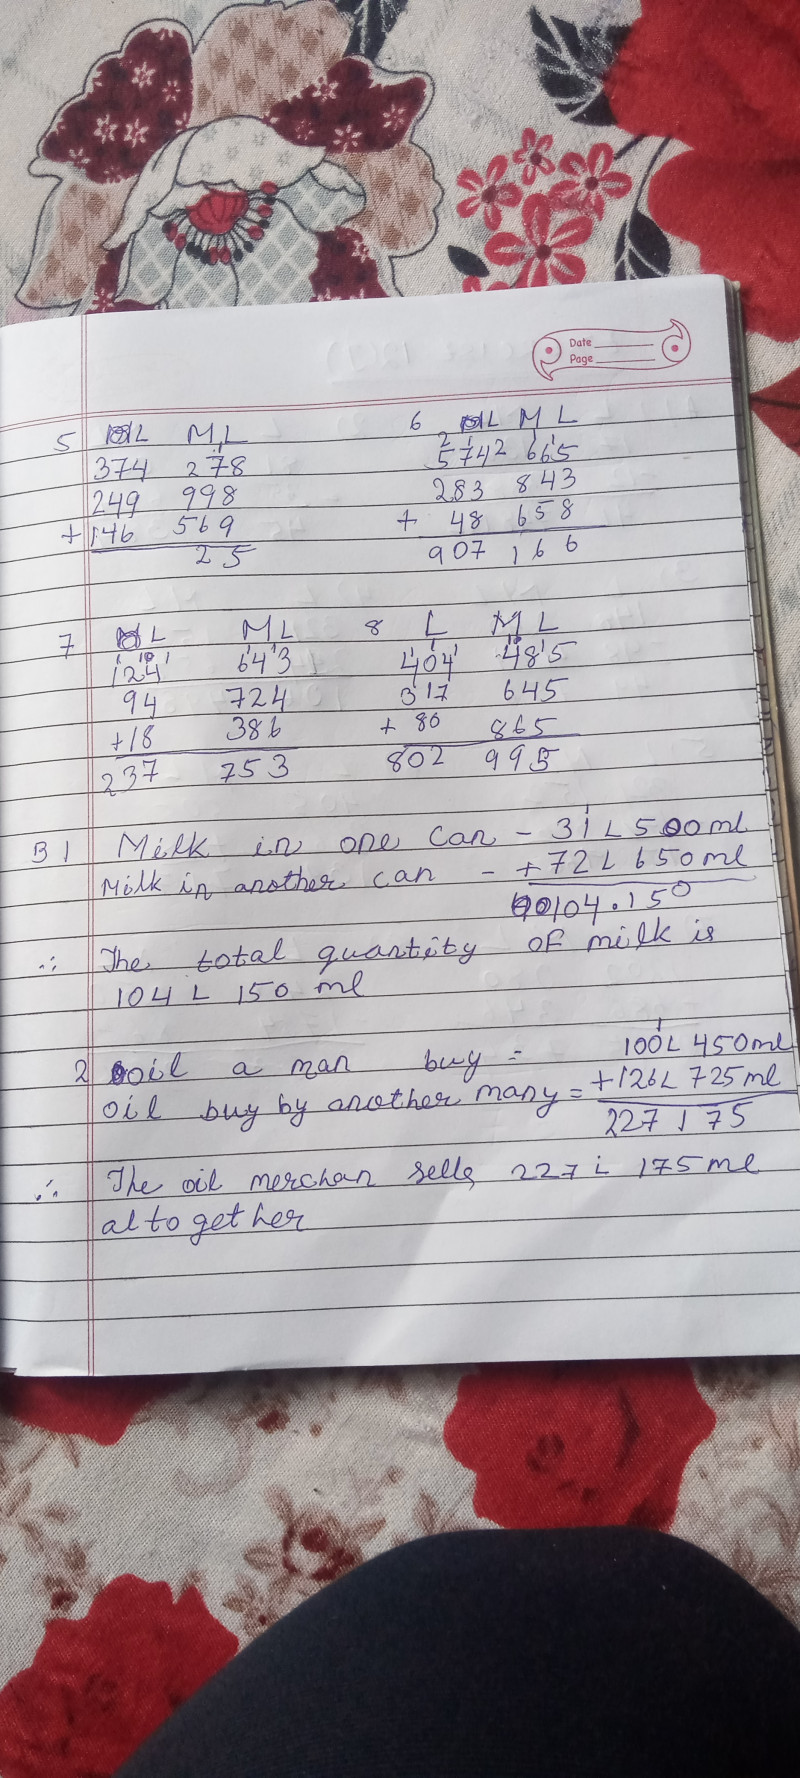 Date
Page
5 L M L 6 L M L
374 278 574 665
249 998 283 843
+146 569 + 48 658
25 907 166
7 L M L 8 L M L
124 643 404 485
94 724 317 645
+18 386 + 80 865
237 753 802 995
B 1 Milk in one can - 31 L 500 ml
Milk in another can - +72 L 650 ml
104.150
∴ The total quantity of milk is
104 L 150 ml
2 oil a man buy = 100 L 450 ml
oil buy by another many = +126 L 725 ml
227 175
∴ The oil merchan sells 227 L 175 ml
altogether